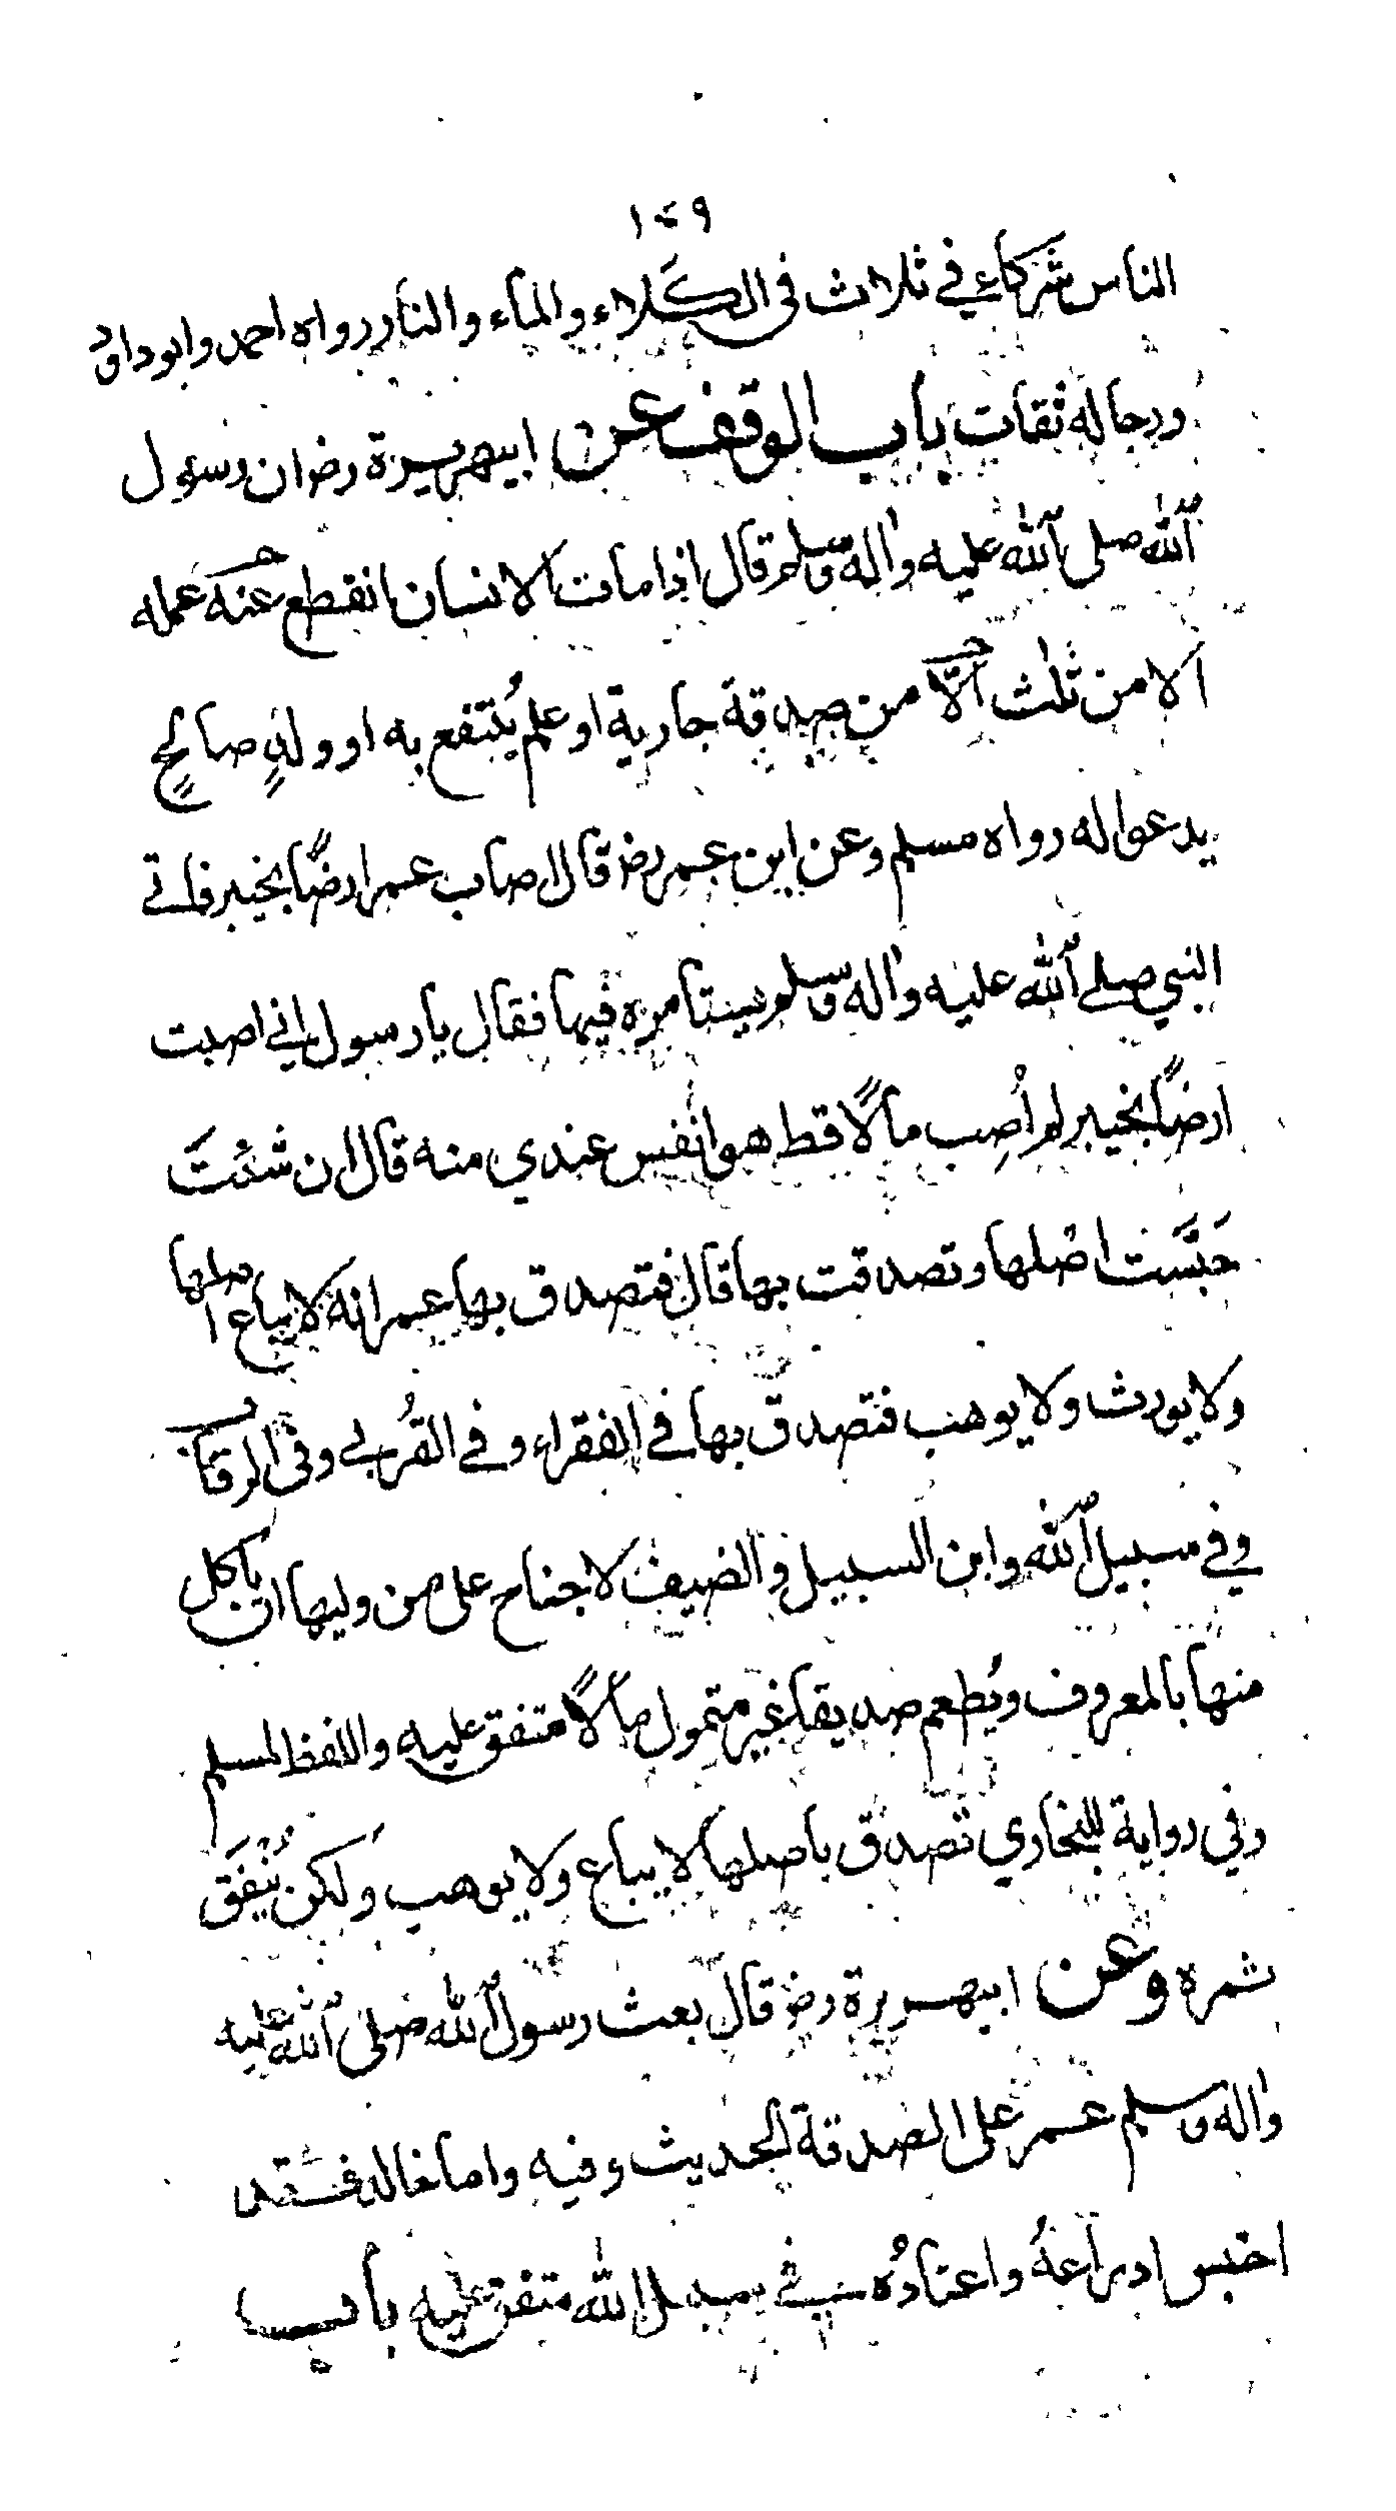 ١٤٩
الناس شركاء في ثلاث في الكَلاء والماء والنار رواه احمد وابو داود
ورجاله ثقات باب الوقف عن ابيهريرة رض ان رسول
الله صلى الله عليه واله وسلم قال اذا مات الانسان انقطع عنه عمله
الا من ثلث الّا من صدقة جارية او علم يُنتفع به او ولدٍ صالحٍ
يدعوا له رواه مسلم وعن ابن عمر رض قال اصاب عمر ارضًا بخيبر فاتى
النبي صلى الله عليه واله وسلم يستامره فيها فقال يا رسول اني اصبت
ارضًا بخيبر لم اُصِب مالًا قط هو انفس عندي منه قال ان شئتَ
حَبَّستَ اصْلها وتصدقت بها قال فتصدق بها عمر انه لا يباع اصلها
ولا يورث ولا يوهب فتصدق بها في الفقراء وفي القُربى وفي الرقاب
وفي سبيل الله وابن السبيل والضيف لا جناح على من وليها ان ياكل
منها بالمعروف ويُطعم صديقا غير متمول مالًا متفق عليه واللفظ لمسلم
وفي رواية للبخاري تصدق باصلها لا يباع ولا يوهب ولكن يُنْفَقَ
ثمره وعن ابيهريرة رض قال بعث رسول الله صلى الله عليه
واله وسلم عمر على الصدقة الحديث وفيه واما خالد فقد
احتبس ادراعهُ واعتادُه في سبيل الله متفق عليه باب